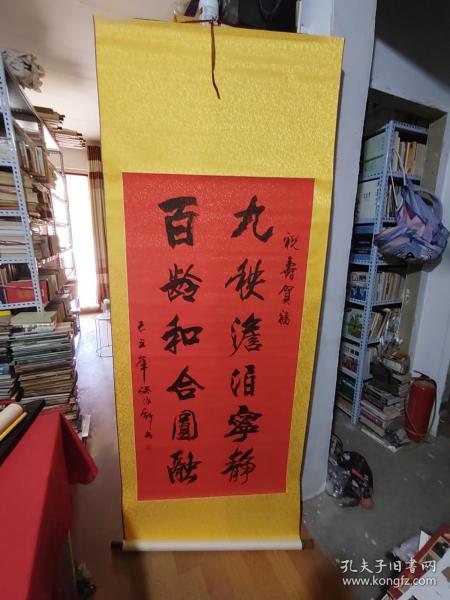 祝寿贺福
九秩澹泊宁静
百龄和合圆融
己丑年
孔夫子旧书网
www.kongfz.com